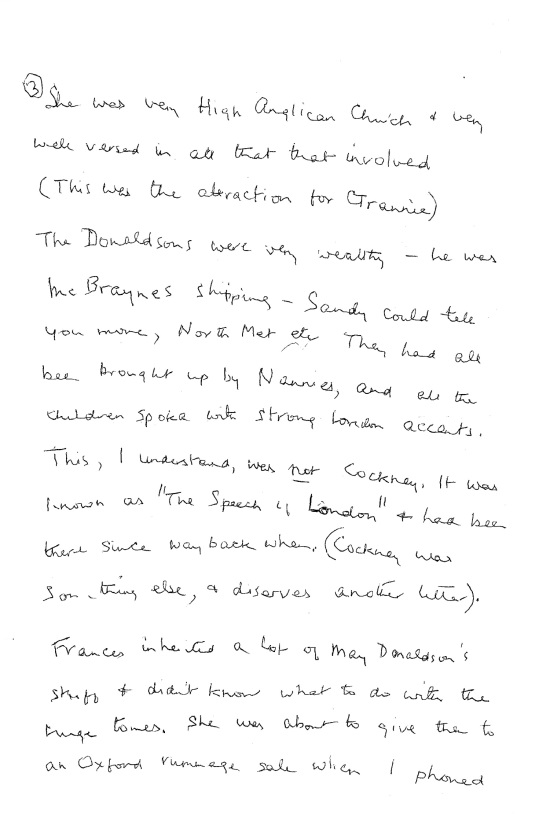 ③ She was very High Anglican Church & very
well versed in all that that involved
(This was the attraction for Grannie)
The Donaldsons were very wealthy – he was
McBraynes shipping – Sandy could tell
you more, North Met etc They had all
been brought up by Nannies, and all the
children spoke with strong London accents.
This, I understand, was not Cockney. It was
known as "The Speech of London" & had been
there since way back when. (Cockney was
something else, & deserves another letter).
Frances inherited a lot of May Donaldson's
stuff & didn't know what to do with the
huge tomes. She was about to give them to
an Oxford rummage sale when I phoned